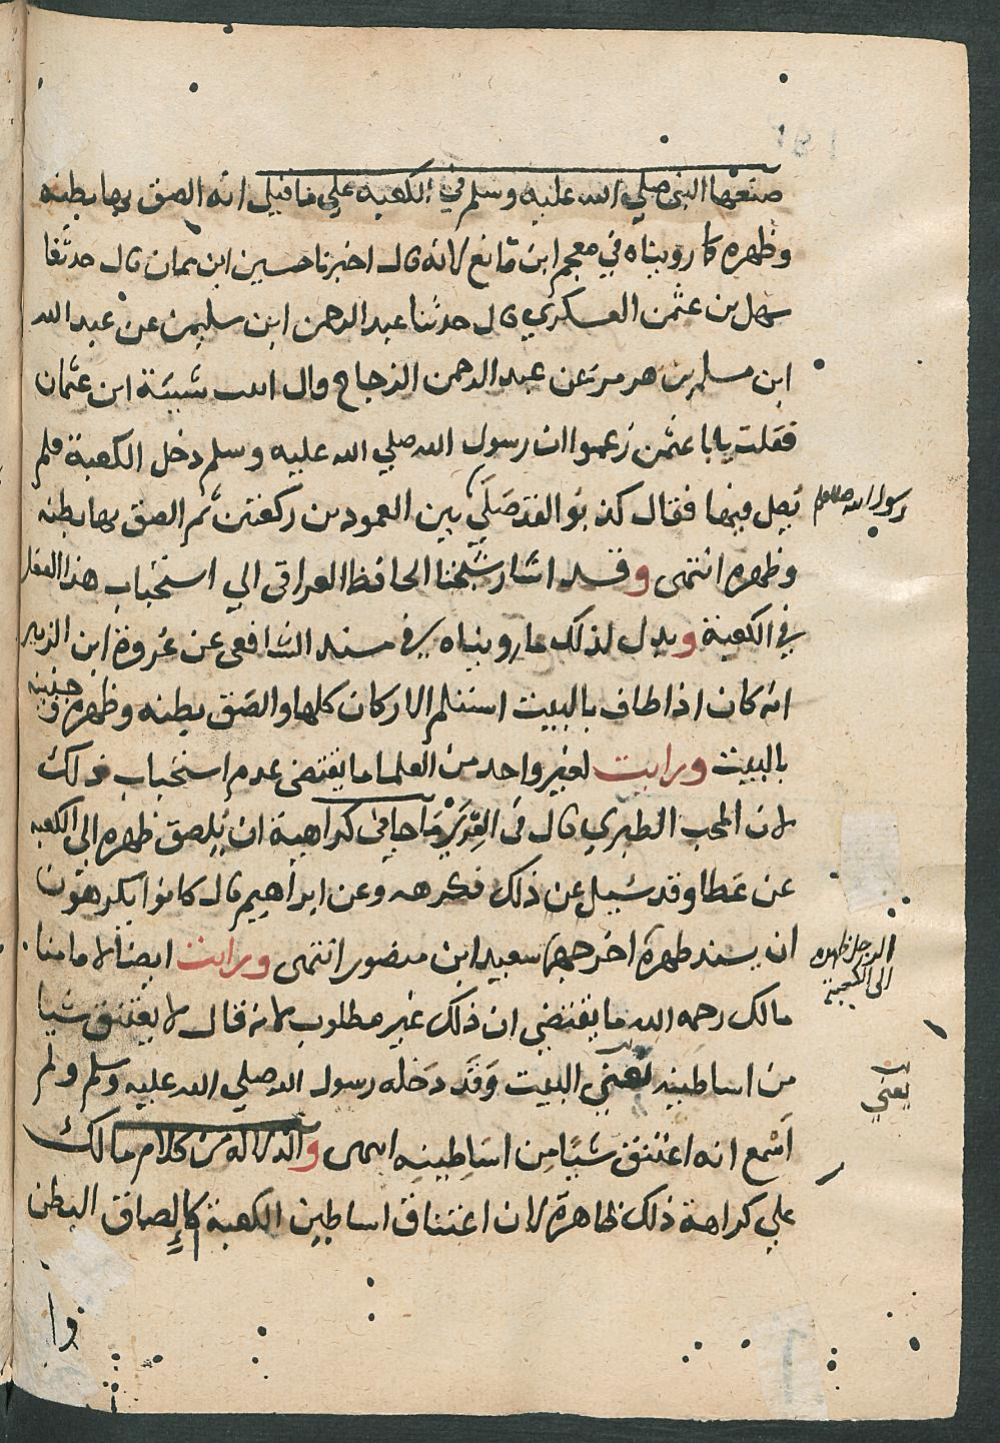 صنعها النبى صلي الله عليه وسلم في الكعبه علي ما قيل انه الصق بها بطنه
وظهره كا رويناه في معجم ابن قانع لانه قال اخبرنا حسين ابن قال حدثنا
سهل بن عثمن العسكري قال حدثنا عبد الرحمن ابن سليمن عن عبد الله
ابن مسلم بن هرمز عن عبد الرحمن الزجاج قال اتيت شيبة ابن عثمان
فقلت يابا عثمن زعموا ان رسول الله صلي الله عليه وسلم دخل الكعبة فلم
يصل فيها فقال كذبوا لقد صَلَي بين العمودين ركعتين ثم الصق بها بطنه
رسول الله صلعم
وظهره انتهى وقد اشار شيخنا الحافظ العراقى الي استحباب هذا الفعل
في الكعبة ويدل لذلك ما رويناه في مسند الشافعى عن عُروة ابن الزبير
انه كان اذا طاف بالبيت استلم الاركان كلها والصَق بطنه وظهره وجنبيه
بالبيت ورايت لغير واحد من العلما ما يقتضى عدم استحباب ذلك
لان المحب الطبري قال في القِرَي مَا جا في كراهية ان يُلصق ظهره الى الكعبه
عن عَطا وقد سُيل عن ذلك فكرهه وعن ابراهيم قال كانوا يكرهون
ان يسند ظهره اخرجهما سعيد ابن منصور انتهى ورايت ايضًا لامامنا
الرجل ظهره
الى الكعبة
مالك رحمه الله ما يقتضي ان ذلك غير مطلوب لانه قال لا يعتنق شيا
من اساطينه يعني البيت وَقَد دَخله رسول الله صلي الله عليه وسلم ولم
يعني
اَسْمع انه اعتنق شيًا مِن اسَاطِينه انتهى والدلاله من كلام مالك
علي كراهة ذلك ظاهرة لان اعتناق اساطين الكعبة كالِصاق البطن
وا